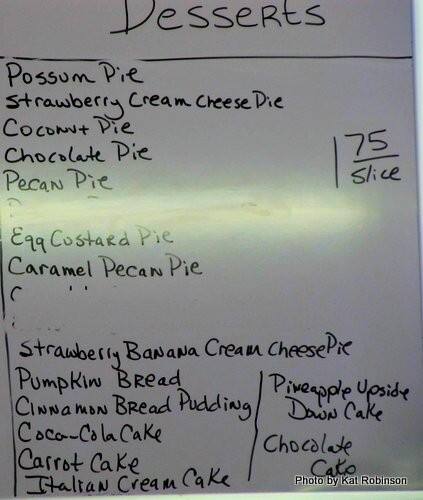 Desserts
Possum Pie
Strawberry Cream Cheese Pie
Coconut Pie
Chocolate Pie
Pecan Pie
1 75
Slice
Egg Custard Pie
Caramel Pecan Pie
Strawberry Banana Cream Cheese Pie
Pumpkin Bread
Cinnamon Bread Pudding
Coca-Cola Cake
Carrot Cake
Italian Cream Cake
Pineapple Upside
Down Cake
Chocolate
Cake
Photo by Kat Robinson